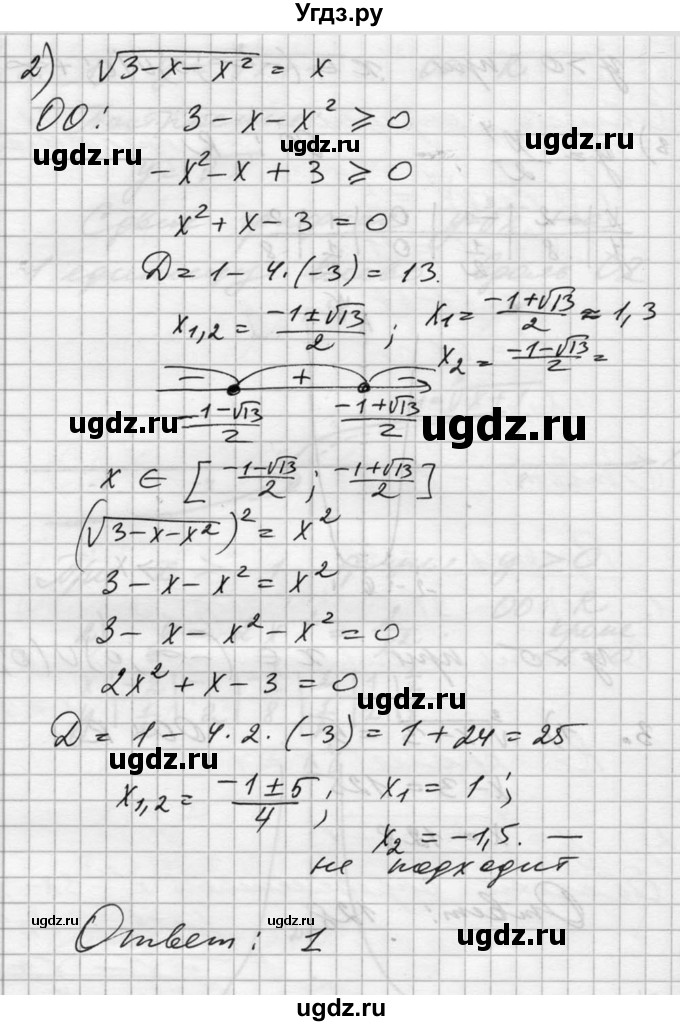 Угдз.ру
2) √(3-x-x²) = x
ОО: 3 - x - x² ⩾ 0
ugdz.ru ugdz.ru
-x² - x + 3 ⩾ 0
x² + x - 3 = 0
D = 1 - 4·(-3) = 13.
x₁,₂ = (-1±√13)/2 ; x₁ = (-1+√13)/2 ≈ 1,3
x₂ = (-1-√13)/2 =
- + -
(-1-√13)/2 (-1+√13)/2
ugdz.ru ugdz.ru
x ∈ [(-1-√13)/2 ; (-1+√13)/2]
(√(3-x-x²))² = x²
ugdz.ru ugdz.ru
3 - x - x² = x²
3 - x - x² - x² = 0
2x² + x - 3 = 0
ugdz.ru
D = 1 - 4·2·(-3) = 1 + 24 = 25
ugdz.ru
x₁,₂ = (-1±5)/4 ; x₁ = 1 ;
x₂ = -1,5. —
не подходит
ugdz.ru ugdz.ru ugdz.ru
Ответ: 1
ugdz.ru